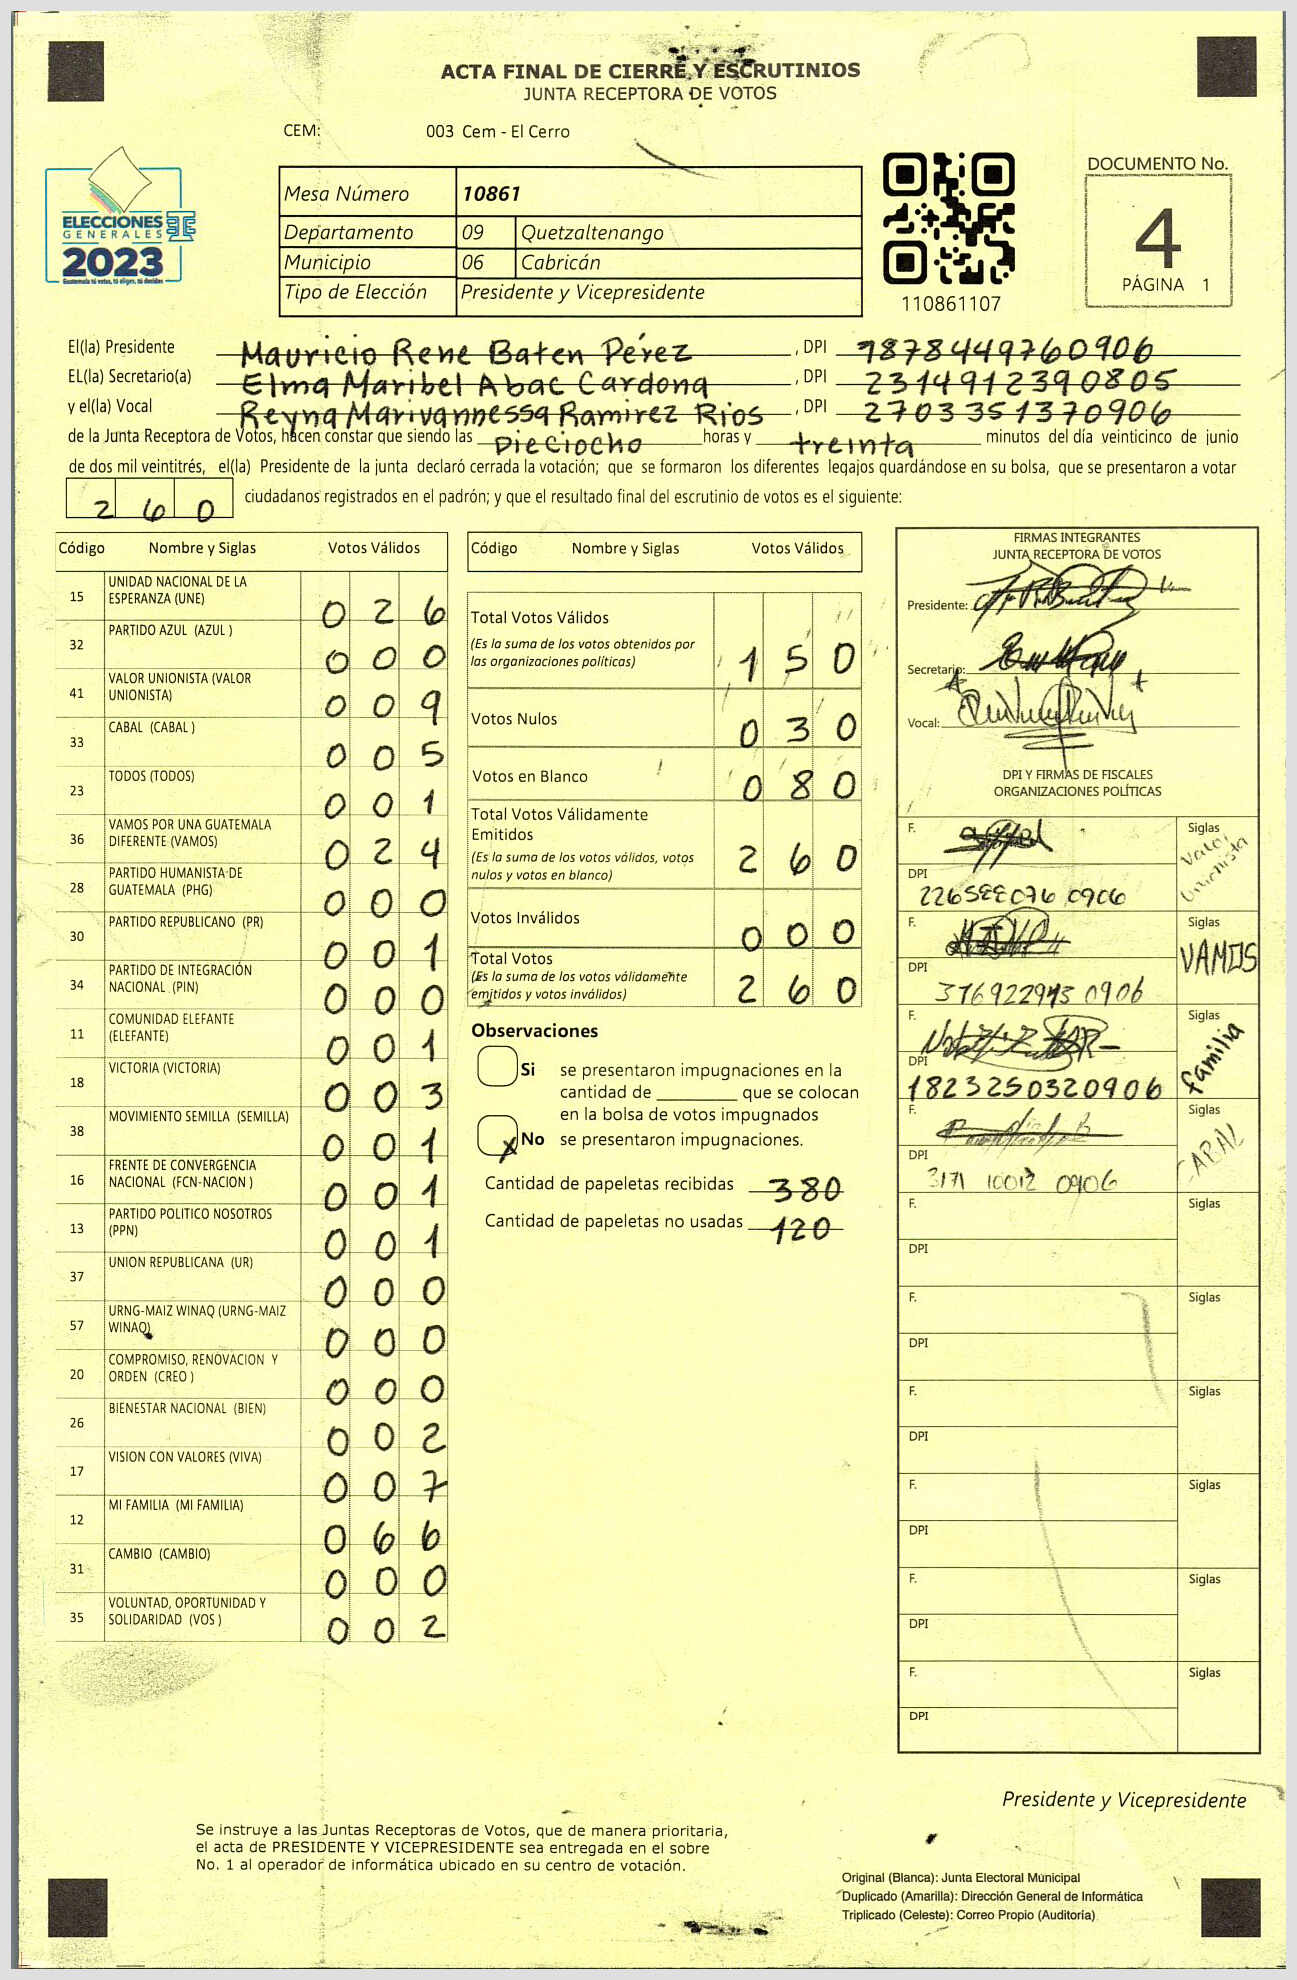 ACTA FINAL DE CIERRE Y ESCRUTINIOS
JUNTA RECEPTORA DE VOTOS
CEM: 003 Cem - El Cerro
ELECCIONES
GENERALES
2023
Guatemala tú votas, tú eliges, tú decides
Mesa Número 10861
Departamento 09 Quetzaltenango
Municipio 06 Cabricán
Tipo de Elección Presidente y Vicepresidente
110861107
DOCUMENTO No.
4
PÁGINA 1
El(la) Presidente Mauricio Rene Baten Pérez, DPI 1878449760906
EL(la) Secretario(a) Elma Maribel Abac Cardona, DPI 2314912390805
y el(la) Vocal Reyna Marivannessa Ramirez Rios, DPI 2703351370906
de la Junta Receptora de Votos, hacen constar que siendo las Dieciocho horas y treinta minutos del día veinticinco de junio
de dos mil veintitrés, el(la) Presidente de la junta declaró cerrada la votación; que se formaron los diferentes legajos guardándose en su bolsa, que se presentaron a votar
260 ciudadanos registrados en el padrón; y que el resultado final del escrutinio de votos es el siguiente:
Código Nombre y Siglas Votos Válidos
15 UNIDAD NACIONAL DE LA
ESPERANZA (UNE) 026
32 PARTIDO AZUL (AZUL ) 000
41 VALOR UNIONISTA (VALOR
UNIONISTA) 009
33 CABAL (CABAL ) 005
23 TODOS (TODOS) 001
36 VAMOS POR UNA GUATEMALA
DIFERENTE (VAMOS) 024
28 PARTIDO HUMANISTA DE
GUATEMALA (PHG) 000
30 PARTIDO REPUBLICANO (PR) 001
34 PARTIDO DE INTEGRACIÓN
NACIONAL (PIN) 000
11 COMUNIDAD ELEFANTE
(ELEFANTE) 001
18 VICTORIA (VICTORIA) 003
38 MOVIMIENTO SEMILLA (SEMILLA) 001
16 FRENTE DE CONVERGENCIA
NACIONAL (FCN-NACION ) 001
13 PARTIDO POLITICO NOSOTROS
(PPN) 001
37 UNION REPUBLICANA (UR) 000
57 URNG-MAIZ WINAQ (URNG-MAIZ
WINAQ) 000
20 COMPROMISO, RENOVACION Y
ORDEN (CREO ) 000
26 BIENESTAR NACIONAL (BIEN) 002
17 VISION CON VALORES (VIVA) 007
12 MI FAMILIA (MI FAMILIA) 066
31 CAMBIO (CAMBIO) 000
35 VOLUNTAD, OPORTUNIDAD Y
SOLIDARIDAD (VOS ) 002
Código Nombre y Siglas Votos Válidos
Total Votos Válidos
(Es la suma de los votos obtenidos por
las organizaciones políticas) 150
Votos Nulos 030
Votos en Blanco 080
Total Votos Válidamente
Emitidos
(Es la suma de los votos válidos, votos
nulos y votos en blanco) 260
Votos Inválidos 000
Total Votos
(Es la suma de los votos válidamente
emitidos y votos inválidos) 260
Observaciones
Si se presentaron impugnaciones en la
cantidad de ________ que se colocan
en la bolsa de votos impugnados
X No se presentaron impugnaciones.
Cantidad de papeletas recibidas 380
Cantidad de papeletas no usadas 120
FIRMAS INTEGRANTES
JUNTA RECEPTORA DE VOTOS
Presidente:
Secretario:
Vocal:
DPI Y FIRMAS DE FISCALES
ORGANIZACIONES POLÍTICAS
F. Siglas Valor
Unionista
DPI
0906
F. Siglas
VAMOS
DPI
0906
F. Siglas
familia
DPI
1823250320906
F. Siglas
CABAL
DPI
3171 10012 0906
F. Siglas
DPI
F. Siglas
DPI
F. Siglas
DPI
F. Siglas
DPI
F. Siglas
DPI
F. Siglas
DPI
Presidente y Vicepresidente
Se instruye a las Juntas Receptoras de Votos, que de manera prioritaria,
el acta de PRESIDENTE Y VICEPRESIDENTE sea entregada en el sobre
No. 1 al operador de informática ubicado en su centro de votación.
Original (Blanca): Junta Electoral Municipal
Duplicado (Amarilla): Dirección General de Informática
Triplicado (Celeste): Correo Propio (Auditoría)